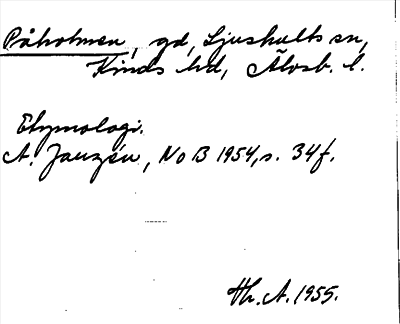 Påholmen, gd, Ljushults sn,
Kinds hd, Älvsb. l.
Etymologi.
A. Janzén, NoB 1954, s. 34f.
Th. A. 1955.